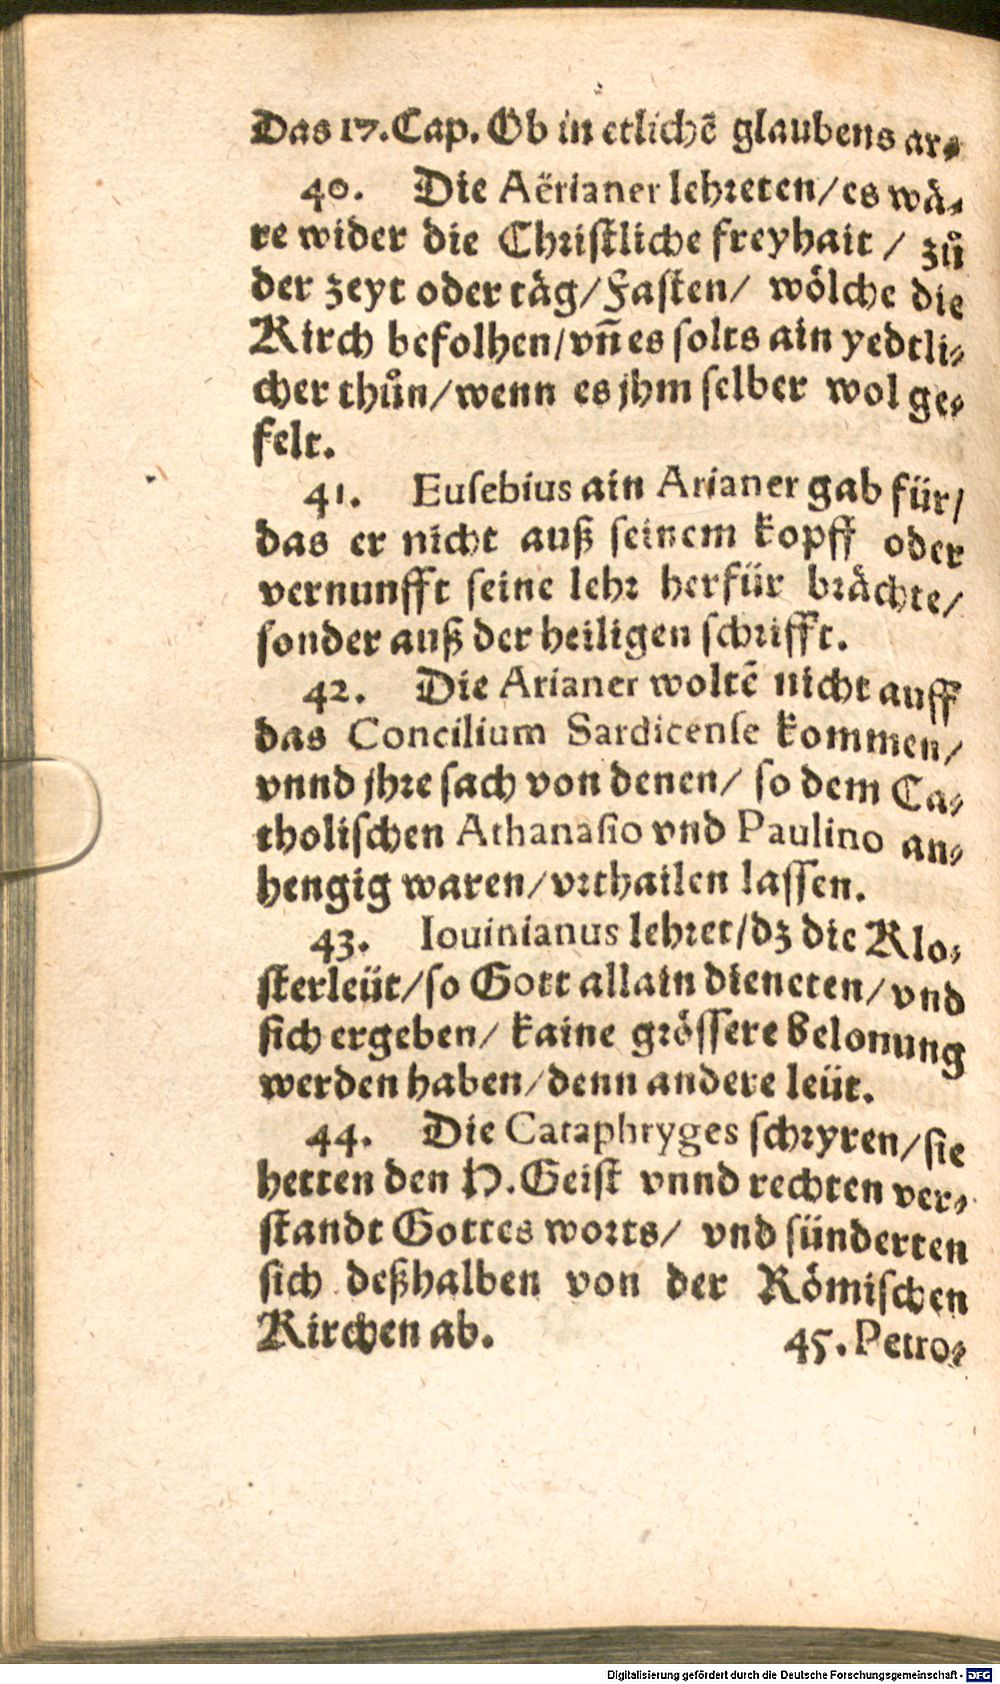 Das 17. Cap. Ob in etlichē glaubens ar⸗
40. Die Aërianer lehreten/es wä⸗
re wider die Christliche freyhait / zů
der zeyt oder täg/Fasten/ wölche die
Kirch befolhen/vñ es solts ain yedtli⸗
cher thůn/wenn es jhm selber wol ge⸗
felt.
41. Eusebius ain Arianer gab für/
das er nicht auß seinem kopff oder
vernunfft seine lehr herfür brächte/
sonder auß der heiligen schrifft.
42. Die Arianer woltē nicht auff
das Concilium Sardicense kommen/
vnnd jhre sach von denen/ so dem Ca⸗
tholischen Athanasio vnd Paulino an⸗
hengig waren/vrthailen lassen.
43. Iouinianus lehret/dz die Klo⸗
sterleüt/so Gott allain dieneten/vnd
sich ergeben/ kaine grössere Belonung
werden haben/denn andere leüt.
44. Die Cataphryges schryren/sie
hetten den H. Geist vnnd rechten ver⸗
standt Gottes worts/ vnd sünderten
sich deßhalben von der Römischen
Kirchen ab. 45. Petro⸗
Digitalisierung gefördert durch die Deutsche Forschungsgemeinschaft - DFG